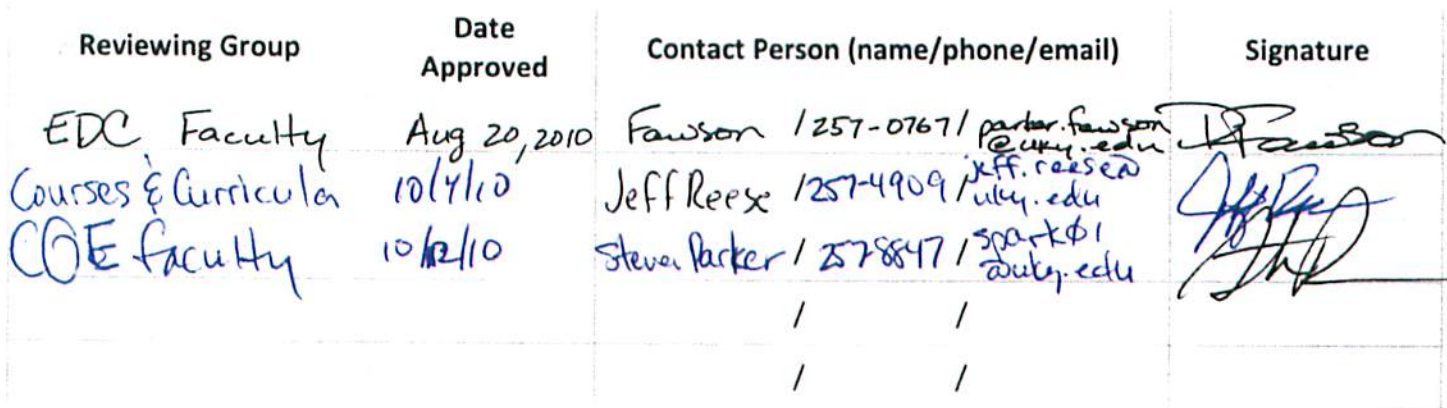 Reviewing Group Date Approved Contact Person (name/phone/email) Signature
EDC Faculty Aug 20, 2010 Fawson / 257-0767 / parker.fawson @uky.edu
Courses & Curricula 10/4/10 Jeff Reese / 257-4909 / jeff.reese@ uky.edu
COE faculty 10/12/10 Steven Parker / 257-8847 / spark01 @uky.edu
/ /
/ /